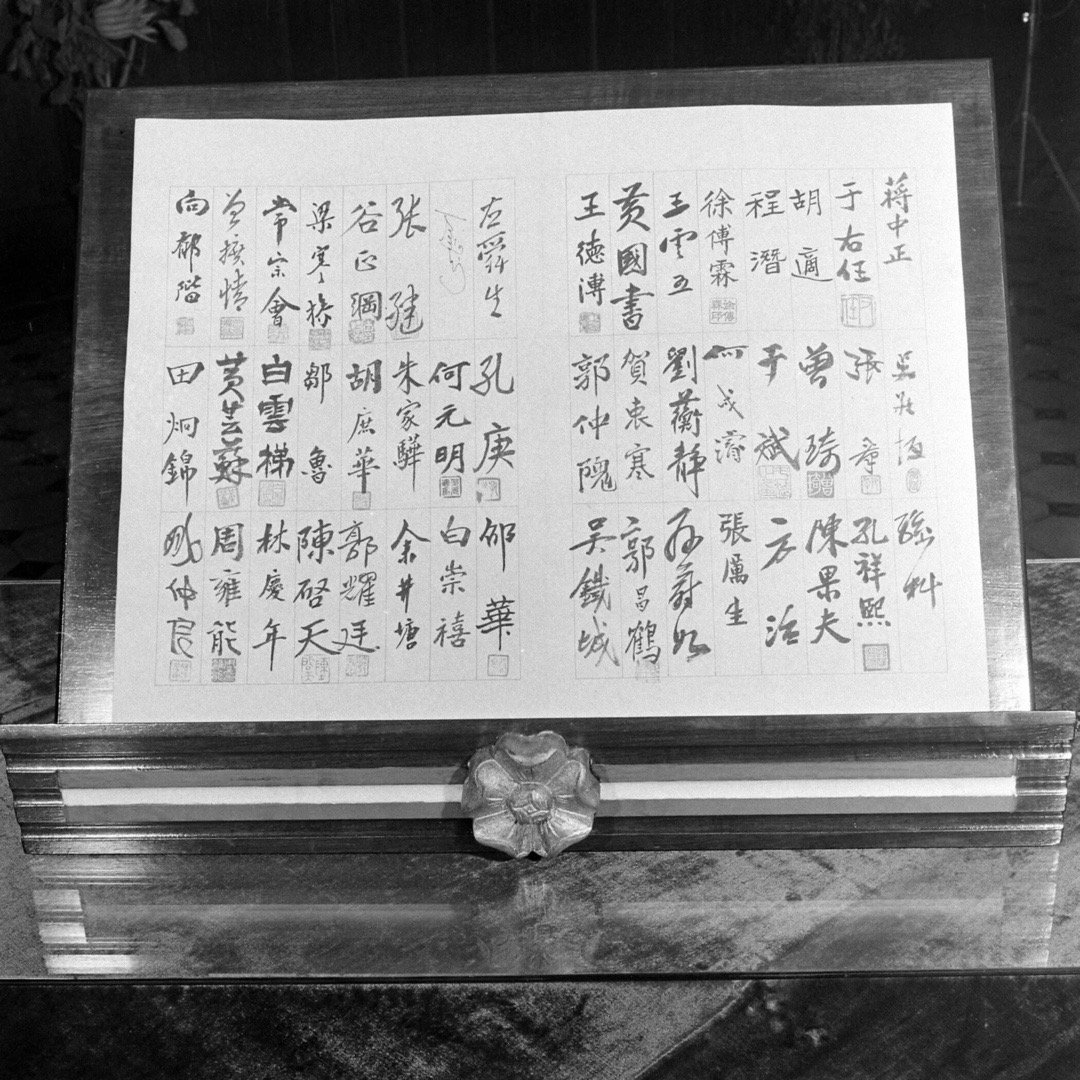 蔣中正
于右任
胡適
程潛
徐傅霖
王雲五
黃國書
王德溥
張群
曾琦
于斌
何成濬
劉蘅靜
賀衷寒
郭仲隗
孫科
孔祥熙
陳果夫
方治
張厲生
孫蔚如
郭昌鶴
吳鐵城
左舜生
張繼
谷正綱
梁寒操
常宗會
曾擴情
向郁階
孔庚
何元明
朱家驊
胡庶華
鄒魯
白雲梯
黃芸蘇
田炯錦
邵華
白崇禧
余井塘
郭耀廷
陳啓天
林慶年
周雍能